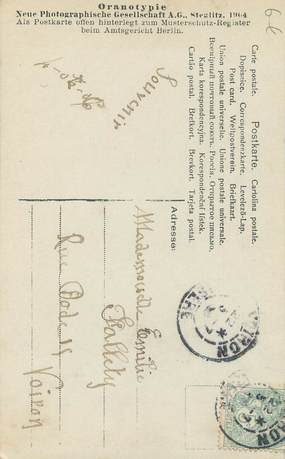 Oranotypie
Neue Photographische Gesellschaft A.G., Steglitz, 1904
Als Postkarte offen hinterlegt zum Musterschutz-Register
beim Amtsgericht Berlin.
Carte postale. Postkarte. Cartolina postale.
Dopisnice. Correspondenzkarte. Levelező-Lap.
Post card. Weltpostverein. Briefkaart.
Union postale universelle. Unione postale universale.
Всемирный почтовый союзъ. Россія. Открытое письмо.
Karta korespondencyjna. Korespondenční lístek.
Cartão postal. Brefkort. Brevkort. Tarjeta postal.
Adresse:
Souvenir
Mademoiselle Emilie
Rue
Voiron